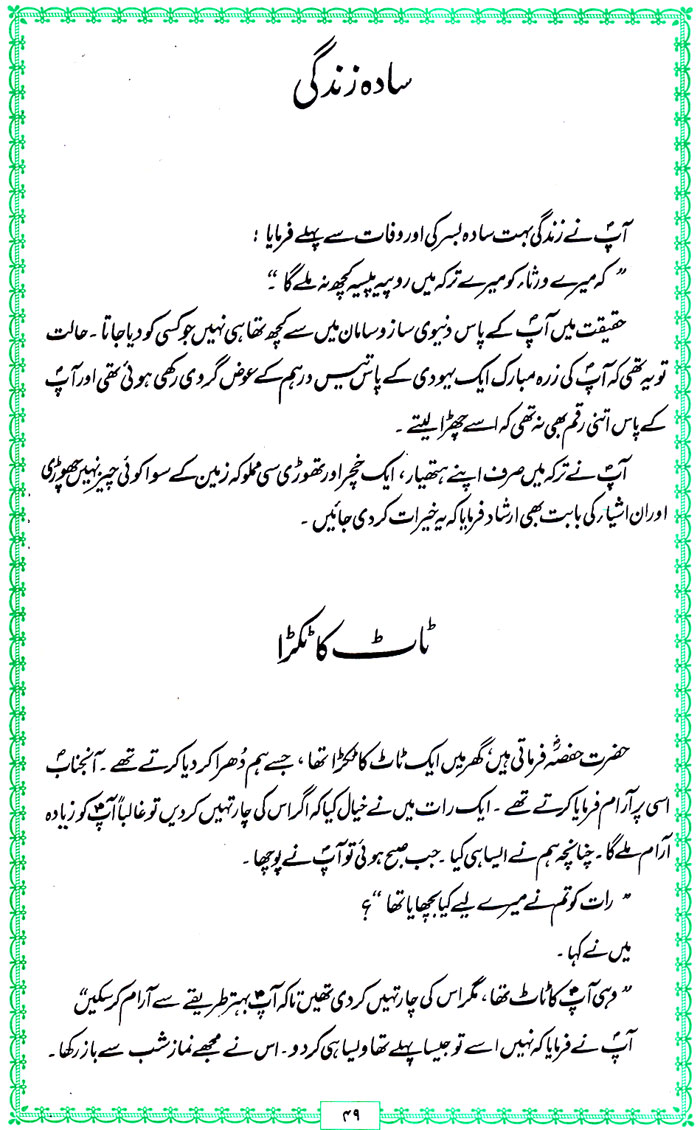 سادہ زندگی
آپؐ نے زندگی بہت سادہ بسر کی اور وفات سے پہلے فرمایا :
”کہ میرے ورثاء کو میرے ترکہ میں روپیہ پیسہ کچھ نہ ملے گا“۔
حقیقت میں آپؐ کے پاس دنیوی ساز و سامان میں سے کچھ تھا ہی نہیں جو کسی کو دیا جاتا۔ حالت
تو یہ تھی کہ آپؐ کی زرہ مبارک ایک یہودی کے پاس تیس درہم کے عوض گروی رکھی ہوئی تھی اور آپؐ
کے پاس اتنی رقم بھی نہ تھی کہ اسے چھڑا لیتے۔
آپؐ نے ترکہ میں صرف اپنے ہتھیار، ایک خچر اور تھوڑی سی مملوکہ زمین کے سوا کوئی چیز نہیں چھوڑی
اور ان اشیاء کی بابت بھی ارشاد فرمایا کہ یہ خیرات کر دی جائیں۔
ٹاٹ کا ٹکڑا
حضرت حفصہؓ فرماتی ہیں، گھر میں ایک ٹاٹ کا ٹکڑا تھا، جسے ہم دُھرا کر دیا کرتے تھے۔ آنجنابؐ
اسی پر آرام فرمایا کرتے تھے۔ ایک رات میں نے خیال کیا کہ اگر اس کی چار تہیں کر دیں تو غالباً آپؐ کو زیادہ
آرام ملے گا۔ چنانچہ ہم نے ایسا ہی کیا۔ جب صبح ہوئی تو آپؐ نے پوچھا۔
”رات کو تم نے میرے لیے کیا بچھایا تھا“؟
میں نے کہا۔
”وہی آپؐ کا ٹاٹ تھا، مگر اس کی چار تہیں کر دی تھیں تاکہ آپؐ بہتر طریقے سے آرام کر سکیں“
آپؐ نے فرمایا کہ نہیں اسے تو جیسا پہلے تھا ویسا ہی کر دو۔ اس نے مجھے نماز شب سے باز رکھا۔
۴۹